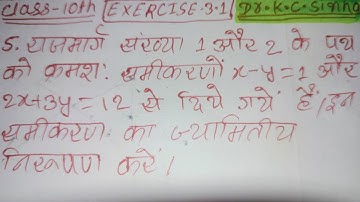 class-10th EXERCISE-3.1 Dr.K.C.Sinha
5. राजमार्ग संख्या 1 और 2 के पथ
को क्रमशः समीकरणों x-y=1 और
2x+3y=12 से दिये गये हैं। इन
समीकरण का ज्यामितीय
निरूपण करें।